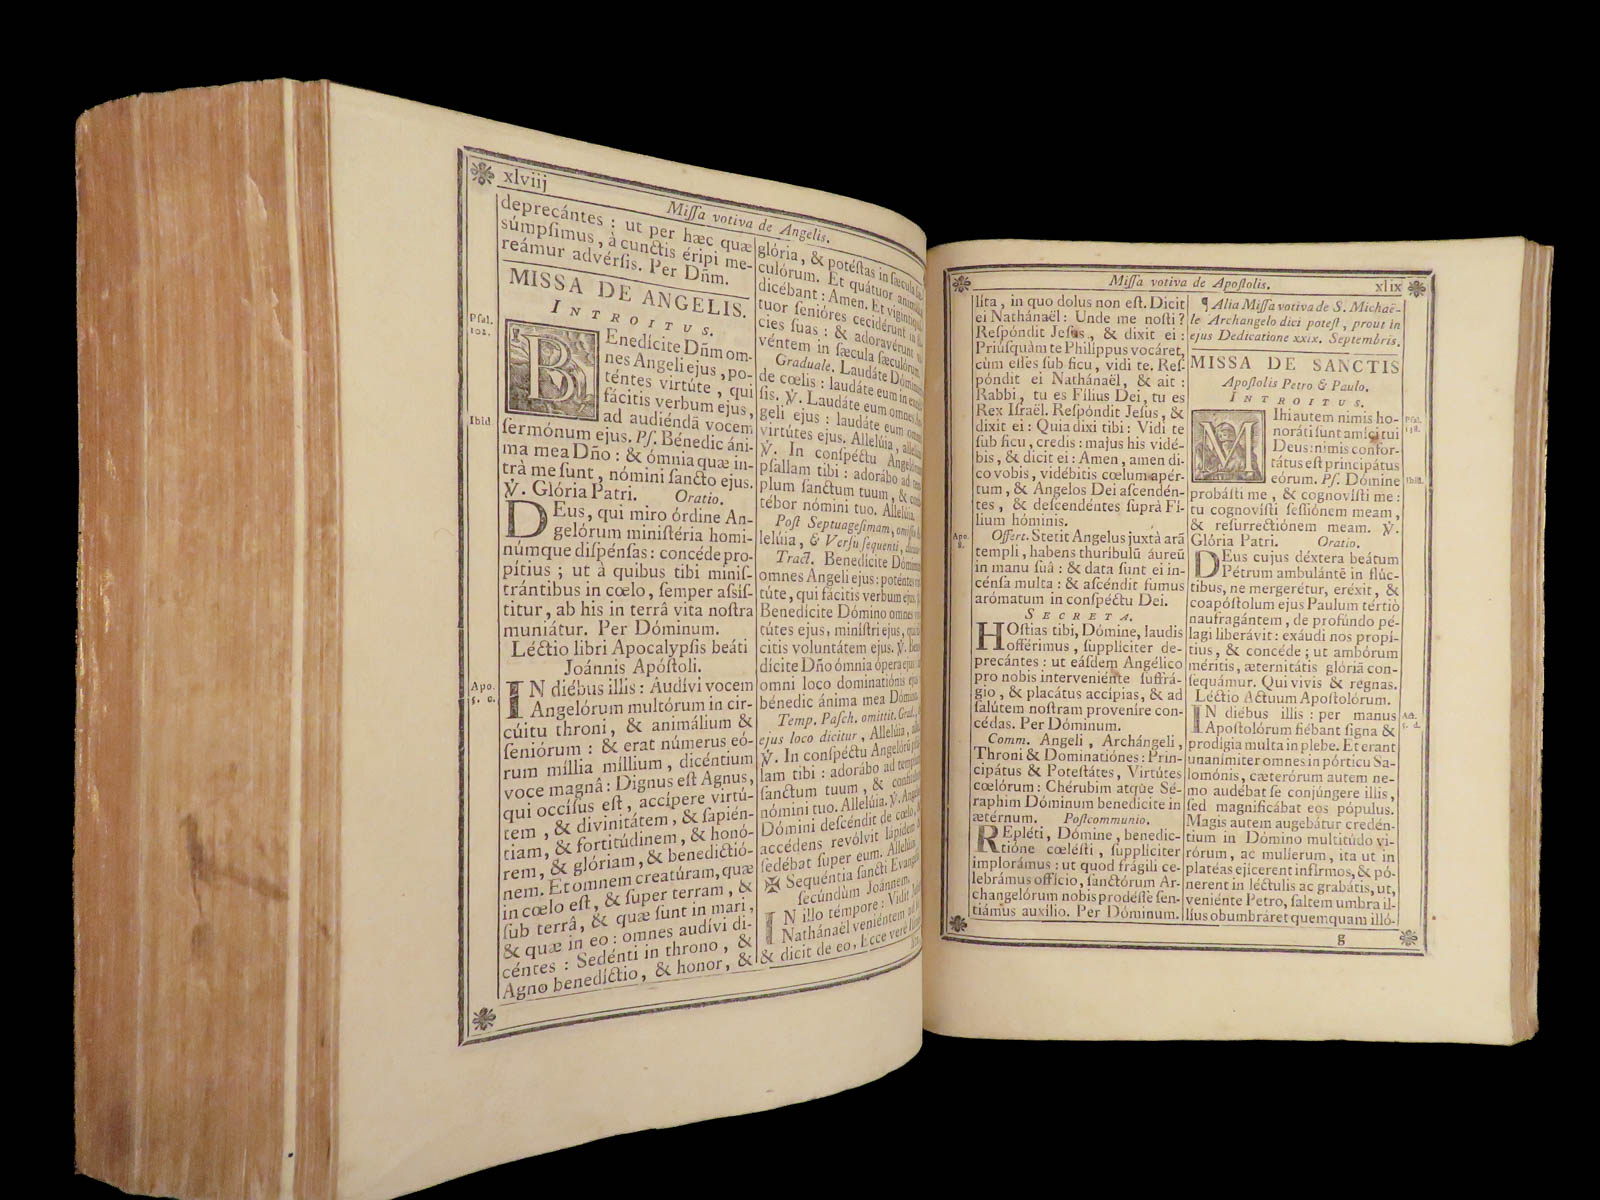 xlviij
Missa votiva de Angelis.
deprecántes : ut per hæc quæ
súmpsimus, à cunctis éripi me-
reámur advérsis. Per Dñm.
MISSA DE ANGELIS.
INTROITUS.
Psal.
102.
BEnedícite Dñm om-
nes Angeli ejus, po-
téntes virtúte, qui
fácitis verbum ejus,
ad audiéndã vocem
Ibid.
sermónum ejus. Ps. Bénedic áni-
ma mea Dño : & ómnia quæ in-
trà me sunt, nómini sancto ejus.
℣. Glória Patri. Oratio.
DEus, qui miro órdine An-
gelórum ministéria homi-
númque dispénsas : concéde pro-
pítius ; ut à quibus tibi minis-
trántibus in cœlo, semper assís-
titur, ab his in terrâ vita nostra
muniátur. Per Dóminum.
Léctio libri Apocalypsis beáti
Joánnis Apóstoli.
Apo.
5. c.
IN diébus illis : Audívi vocem
Angelórum multórum in cir-
cúitu throni, & animálium &
seniórum : & erat númerus eó-
rum míllia míllium, dicéntium
voce magnâ : Dignus est Agnus,
qui occísus est, accípere virtú-
tem, & divinitátem, & sapién-
tiam, & fortitúdinem, & honó-
rem, & glóriam, & benedictió-
nem. Et omnem creatúram, quæ
in cœlo est, & super terram, &
sub terrâ, & quæ sunt in mari,
& quæ in eo : omnes audívi di-
céntes : Sedénti in throno, &
Agno benedíctio, & honor, &
glória, & potéstas in sæcula
culórum. Et quátuor animália
dicébant : Amen. Et vigínti
tuor senióres cecidérunt in
cies suas : & adoravérunt
véntem in sæcula sæculórum.
Graduale. Laudáte Dóminum
de cœlis : laudáte eum in
sis. ℣. Laudáte eum omnes
geli ejus : laudáte eum omnes
virtútes ejus. Allelúia,
℣. In conspéctu Angelórum
psallam tibi : adorábo ad
plum sanctum tuum, &
tébor nómini tuo. Allelúia.
Post Septuagesimam, omisso
lelúia, & Versu sequenti,
Tract. Benedícite Dóminum
omnes Angeli ejus : poténtes
túte, qui fácitis verbum ejus.
Benedícite Dómino omnes
tútes ejus, minístri ejus, qui
citis voluntátem ejus. ℣.
dícite Dño ómnia ópera ejus
omni loco dominatiónis ejus
bénedic ánima mea Dómino.
Temp. Pasch. omittit. Grad.,
ejus loco dicitur, Allelúia,
℣. In conspéctu Angelórũ
lam tibi : adorábo ad templum
sanctum tuum, &
nómini tuo. Allelúia. ℣. Angelus
Dómini descéndit de cœlo, &
accédens revólvit lápidem &
sedébat super eum. Allelúia.
✠ Sequéntia sancti Evangélii
secúndùm Joánnem.
IN illo témpore : Vidit
Nathánaël veniéntem ad se
& dicit de eo, Ecce verè
Missa votiva de Apostolis.
xlix
lita, in quo dolus non est. Dicit
ei Nathánaël : Unde me nosti ?
Respóndit Jesus, & dixit ei :
Priúsquàm te Philippus vocáret,
cùm esses sub ficu, vidi te. Res-
póndit ei Nathánaël, & ait :
Rabbi, tu es Fílius Dei, tu es
Rex Israël. Respóndit Jesus, &
dixit ei : Quia dixi tibi : Vidi te
sub ficu, credis : majus his vidé-
bis, & dicit ei : Amen, amen di-
co vobis, vidébitis cœlum apér-
tum, & Angelos Dei ascendén-
tes, & descendéntes suprà Fí-
lium hóminis.
Apo.
8.
Offert. Stetit Angelus juxtà arã
templi, habens thuríbulũ áureũ
in manu suâ : & data sunt ei in-
cénsa multa : & ascéndit fumus
arómatum in conspéctu Dei.
SECRETA.
HOstias tibi, Dómine, laudis
offérimus, supplíciter de-
precántes : ut eásdem Angélico
pro nobis interveniénte suffrá-
gio, & placátus accípias, & ad
salútem nostram proveníre con-
cédas. Per Dóminum.
Comm. Angeli, Archángeli,
Throni & Dominatiónes : Prin-
cipátus & Potestátes, Virtútes
cœlórum : Chérubim atque Sé-
raphim Dóminum benedícite in
ætérnum. Postcommunio.
REpléti, Dómine, benedic-
tióne cœlésti, supplíciter
implorámus : ut quod frágili ce-
lebrámus offício, sanctórum Ar-
changelórum nobis prodésse sen-
tiámus auxílio. Per Dóminum.
¶ Alia Missa votiva de S. Michaë-
le Archangelo dici potest, prout in
ejus Dedicatione xxix. Septembris.
MISSA DE SANCTIS
Apostolis Petro & Paulo.
INTROITUS.
Psal.
138.
MIhi autem nimis ho-
noráti sunt amíci tui
Deus : nimis confor-
tátus est principátus
Ibid.
eórum. Ps. Dómine
probásti me, & cognovísti me :
tu cognovísti sessiónem meam,
& resurrectiónem meam. ℣.
Glória Patri. Oratio.
DEus cujus déxtera beátum
Pétrum ambulántẽ in flúc-
tibus, ne mergerétur, eréxit, &
coapóstolum ejus Paulum tértiò
naufragántem, de profúndo pé-
lagi liberávit : exáudi nos propí-
tius, & concéde ; ut ambórum
méritis, æternitátis glóriã con-
sequámur. Qui vivis & regnas.
Léctio Actuum Apostolórum.
Act.
5. d.
IN diébus illis : per manus
Apostolórum fiébant signa &
prodígia multa in plebe. Et erant
unanímiter omnes in pórticu Sa-
lomónis, cæterórum autem ne-
mo audébat se conjúngere illis,
sed magnificábat eos pópulus.
Magis autem augebátur credén-
tium in Dómino multitúdo vi-
rórum, ac mulíerum, ita ut in
platéas ejícerent infírmos, & pó-
nerent in léctulis ac grabátis, ut,
veniénte Petro, saltem umbra il-
líus obumbráret quemquam illó-
g